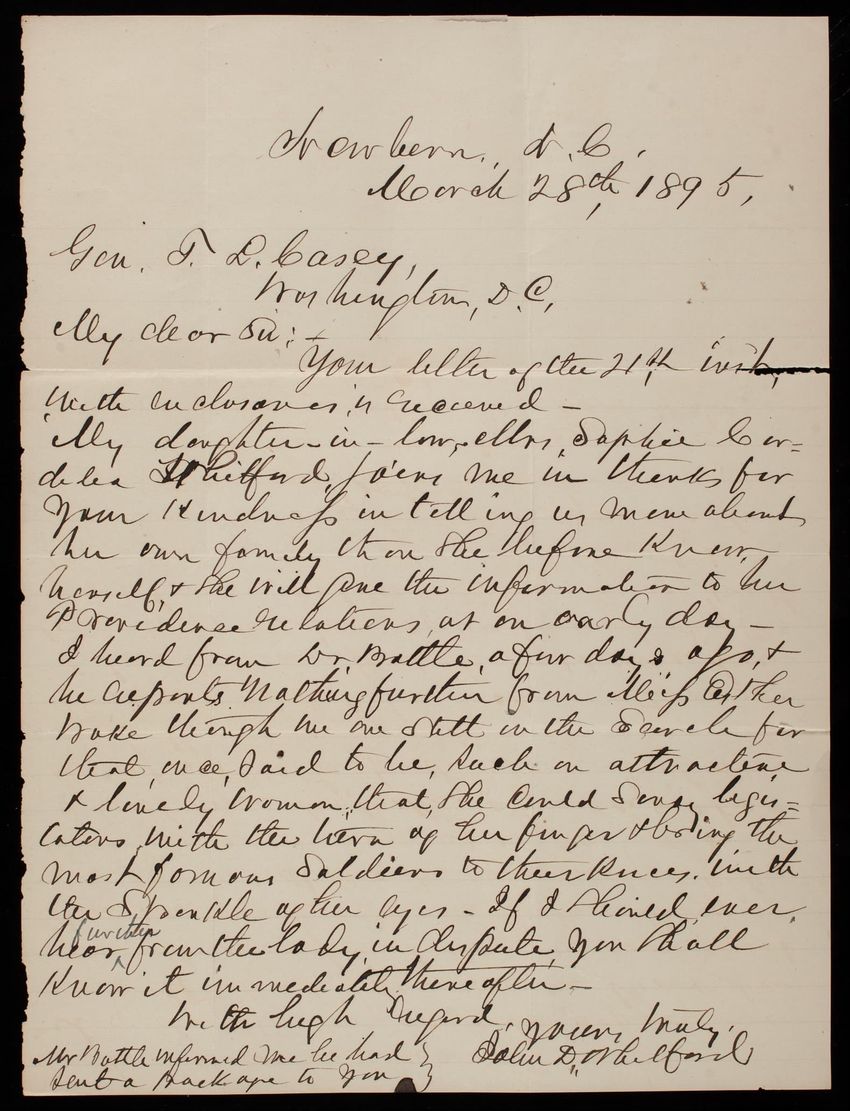 Newbern, N.C.
March 28th, 1895,
Gen. T. L. Casey,
Washington, D.C,
My dear Sir:-
Your letter of the 21st, inst,
with inclosures, is received -
My daughter-in-law, Mrs, Sophie Cor=
delia Whitford, joins me in thanks for
your kindness in telling us more about
her own family than she before knew
herself, & she will give the information to her
Providence relations, at an early day -
I heard from Dr. Battle, a few days ago, &
he reports nothing further from Miss Esther
Wake though we are still in the search for
that, once, said to be, such an attractive
& lovely woman, that, she could sway legis=
lators, with the turn of her finger & bring the
most famous soldiers to their knees, with
the sparkle of her eyes - If I should, ever,
further
hear from the lady, in dispute, you shall
know it immediately thereafter -
With high regard,
yours, truly,
John D. Whitford
Mr Battle informed me he had
sent a package to you